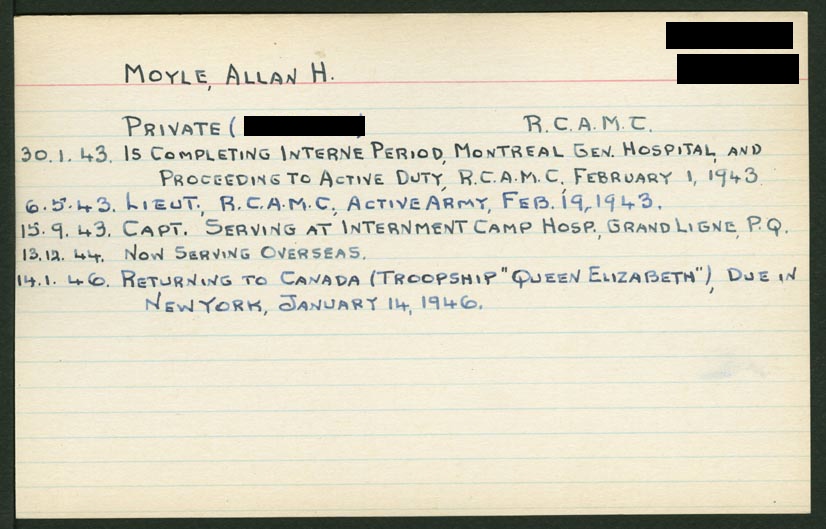 MOYLE, ALLAN H.
PRIVATE ( ) R.C.A.M.C.
30.1.43. IS COMPLETING INTERNE PERIOD, MONTREAL GEN. HOSPITAL, AND
PROCEEDING TO ACTIVE DUTY, R.C.A.M.C., FEBRUARY 1, 1943
6.5.43. LIEUT., R.C.A.M.C., ACTIVE ARMY, FEB. 19, 1943.
15.9.43. CAPT. SERVING AT INTERNMENT CAMP HOSP., GRAND LIGNE, P.Q.
13.12.44. NOW SERVING OVERSEAS.
14.1.46. RETURNING TO CANADA (TROOPSHIP "QUEEN ELIZABETH"), DUE IN
NEW YORK, JANUARY 14, 1946.